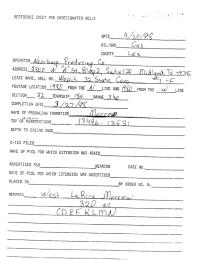 REFERENCE SHEET FOR UNDESIGNATED WELLS
DATE 4/30/98
OIL/GAS Gas
COUNTY Lea
OPERATOR Nearburg Producing Co.
ADDRESS 3300 N "A" St. Bldg 2, Suite 120 Midland, Tx 79705
LEASE NAME, WELL NO. 32 State Com #1-F
FOOTAGE LOCATION 1980 FROM THE N LINE AND 1980 FROM THE W LINE
SECTION 32 TOWNSHIP RANGE
COMPLETION DATE 3/27/98
NAME OF PRODUCING FORMATION Morrow
TOP OF PERFORATIONS 13486 - 13531
DEPTH TO CASING SHOE
C-123 FILED
NAME OF POOL FOR WHICH EXTENSION WAS ASKED
ADVERTISED FOR HEARING CASE NO.
NAME OF POOL FOR WHICH EXTENSION WAS ADVERTISED
PLACED IN BY ORDER NO. R-
REMARKS West La Rica Morrow
320 ac
CDEF KLMN